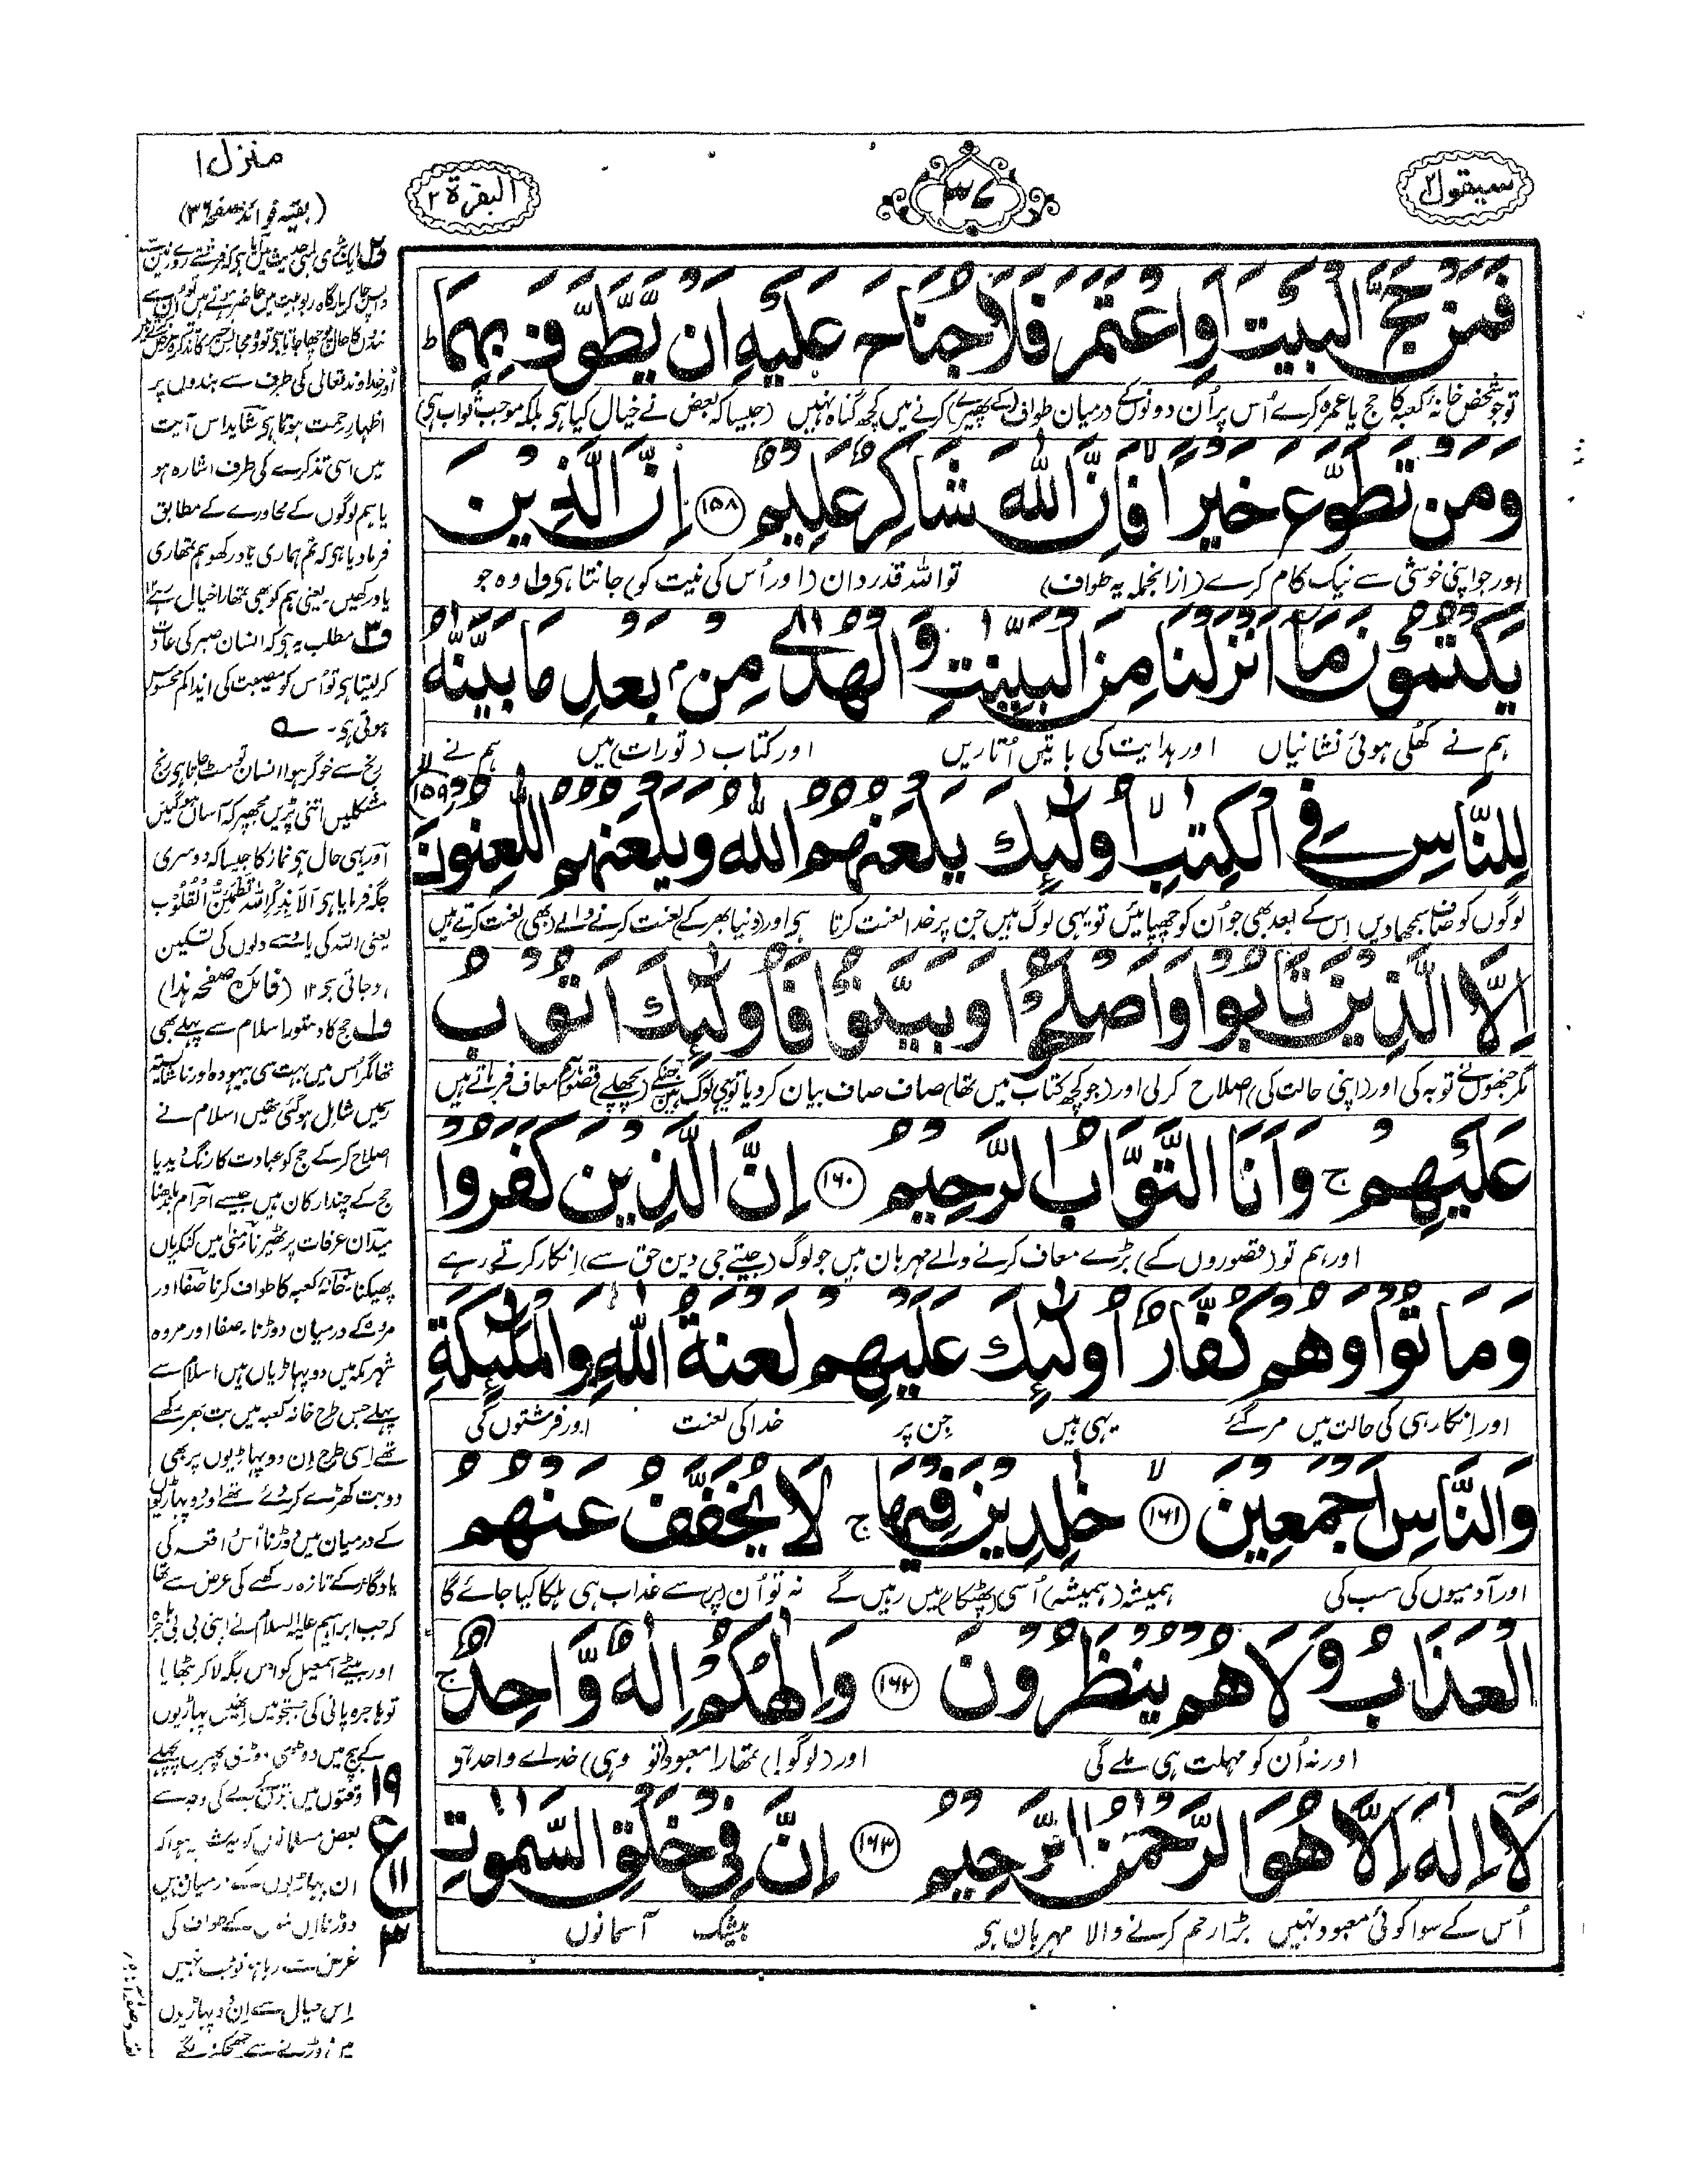 سیقول ۲
۳۷
البقرة ۲
منزل ۱
(بقیہ فوائد صفحہ ۳۶)
فَمَنْ حَجَّ الْبَيْتَ اَوِ اعْتَمَرَ فَلَا جُنَاحَ عَلَيْهِ اَنْ يَّطَّوَّفَ بِهِمَا ؕ
تو جو شخص خانہ کعبہ کا حج یا عمرہ کرے اُس پر اُن دونوں کے درمیان طواف (کے پھیرے) کرنے میں کچھ گناہ نہیں (جیسا کہ بعض نے خیال کیا ہی بلکہ موجب ثواب ہی)
وَمَنْ تَطَوَّعَ خَيْرًا ۙ فَاِنَّ اللّٰهَ شَاكِرٌ عَلِيْمٌ ۝۱۵۸ اِنَّ الَّذِيْنَ
اور جو اپنی خوشی سے نیک کام کرے (ازانجملہ یہ طواف) تو اللہ قدردان (اور اُس کی نیت کو) جانتا ہی ف۱ وہ جو
يَكْتُمُوْنَ مَاۤ اَنْزَلْنَا مِنَ الْبَيِّنٰتِ وَ الْهُدٰى مِنْۢ بَعْدِ مَا بَيَّنّٰهُ
ہم نے کھلی ہوئی نشانیاں اور ہدایت کی باتیں اُتاریں اور کتاب (تورات) میں ہم نے
لِلنَّاسِ فِى الْكِتٰبِ ۙ اُولٰٓئِكَ يَلْعَنُهُمُ اللّٰهُ وَيَلْعَنُهُمُ اللّٰعِنُوْنَ ۙ۝۱۵۹
لوگوں کو صاف صاف سمجھا دیں اس کے بعد بھی جو اُن کو چھپائیں تو یہی لوگ ہیں جن پر خدا لعنت کرتا ہی اور (دنیا بھر کے) لعنت کرنے والے (بھی) لعنت کرتے ہیں
اِلَّا الَّذِيْنَ تَابُوْا وَاَصْلَحُوْا وَبَيَّنُوْا فَاُولٰٓئِكَ اَتُوْبُ
مگر جنھوں نے توبہ کی اور (اپنی حالت کی) اصلاح کر لی اور (جو کچھ کتاب میں تھا) صاف صاف بیان کر دیا تو یہی لوگ ہیں جنکے (پچھلے) قصور ہم معاف فرماتے ہیں
عَلَيْهِمْ ۚ وَاَنَا التَّوَّابُ الرَّحِيْمُ ۝۱۶۰ اِنَّ الَّذِيْنَ كَفَرُوْا
اور ہم تو (قصوروں کے) بڑے معاف کرنے والے مہربان ہیں جو لوگ (جیتے جی دین حق سے) انکار کرتے رہے
وَمَاتُوْا وَهُمْ كُفَّارٌ اُولٰٓئِكَ عَلَيْهِمْ لَعْنَةُ اللّٰهِ وَالْمَلٰٓئِكَةِ
اور انکار ہی کی حالت میں مر گئے یہی ہیں جن پر خدا کی لعنت اور فرشتوں کی
وَالنَّاسِ اَجْمَعِيْنَ ۙ۝۱۶۱ خٰلِدِيْنَ فِيْهَا ۚ لَا يُخَفَّفُ عَنْهُمُ
اور آدمیوں کی سب کی ہمیشہ (ہمیشہ) اُسی (پھٹکار) میں رہیں گے نہ تو اُن (پر) سے عذاب ہی ہلکا کیا جائے گا
الْعَذَابُ وَلَا هُمْ يُنْظَرُوْنَ ۝۱۶۲ وَاِلٰهُكُمْ اِلٰهٌ وَّاحِدٌ ۚ
اور نہ اُن کو مہلت ہی ملے گی اور (لوگو!) تمھارا معبود (تو وہی) خدائے واحد ہی
لَاۤ اِلٰهَ اِلَّا هُوَ الرَّحْمٰنُ الرَّحِيْمُ ۝۱۶۳ اِنَّ فِىْ خَلْقِ السَّمٰوٰتِ
اُس کے سوا کوئی معبود نہیں بڑا رحم کرنے والا مہربان ہی بیشک آسمانوں
اور خداوند تعالی کی طرف سے بندوں پر
اظہار رحمت ہوتا ہی شاید اس آیت
میں اسی تذکرے کی طرف اشارہ ہو
یا ہم لوگوں کے محاورے کے مطابق
فرما دیا ہو کہ تم ہماری یاد رکھو ہم تمھاری
یاد رکھیں۔ یعنی ہم کو بھی تمھارا خیال ہے ۱۲
ف۳ مطلب یہ ہو کہ انسان صبر کی عادت
کر لیتا ہی تو اُس کو مصیبت کی ایذا کم محسوس
ہوتی ہی۔
رنج سے خوگر ہوا انساں تو مٹ جاتا ہی رنج
مشکلیں اتنی پڑیں مجھپر کہ آساں ہو گئیں
اور یہی حال ہی نماز کا جیسا کہ دوسری
جگہ فرمایا ہی اَلَا بِذِكْرِ اللّٰهِ تَطْمَئِنُّ الْقُلُوْبُ
یعنی اللہ کی یاد سے دلوں کی تسکین
ہو جاتی ہی ۱۲ (فائدہ صفحہ ہذا)
ف۱ حج کا دستور اسلام سے پہلے بھی
تھا مگر اُس میں بہت سی بیہودہ اور ناشائستہ
رسمیں شامل ہو گئی تھیں اسلام نے
اصلاح کر کے حج کو عبادت کا رنگ دیدیا
حج کے چند ارکان ہیں جیسے احرام باندھنا
میدان عرفات پر ٹھیرنا منٰی میں کنکریاں
پھینکنا۔ خانہ کعبہ کا طواف کرنا صفا اور
مروہ کے درمیان دوڑنا۔ صفا اور مروہ
شہر مکہ میں دو پہاڑیاں ہیں اسلام سے
پہلے جس طرح خانہ کعبہ میں بت بھر رکھے
تھے اسی طرح ان دو پہاڑیوں پر بھی
دو بت کھڑے کر دئے تھے اور دو پہاڑیوں
کے درمیان میں دوڑنا اُس واقعہ کی
یادگار کے تازہ رکھنے کی غرض سے تھا
کہ جب ابراہیم علیہ السلام نے اپنی بی بی ہاجرہ
اور بیٹے اسمعیل کو اس جگہ لا کر بٹھایا
تو ہاجرہ پانی کی جستجو میں انھیں پہاڑیوں
کے بیچ میں دوڑتی پھریں پچھلے
وقتوں میں بتوں کے کی وجہ سے
بعض مسلمانوں کو یہ شبہ ہوا کہ
ان پہاڑیوں کے درمیان میں
دوڑنا ان بتوں کے طواف کی
غرض سے رہا ہو تو عجب نہیں
اس خیال سے ان دو پہاڑیوں
میں دوڑنے سے جھجکنے لگے
۱۹
ع
۱۱
۳